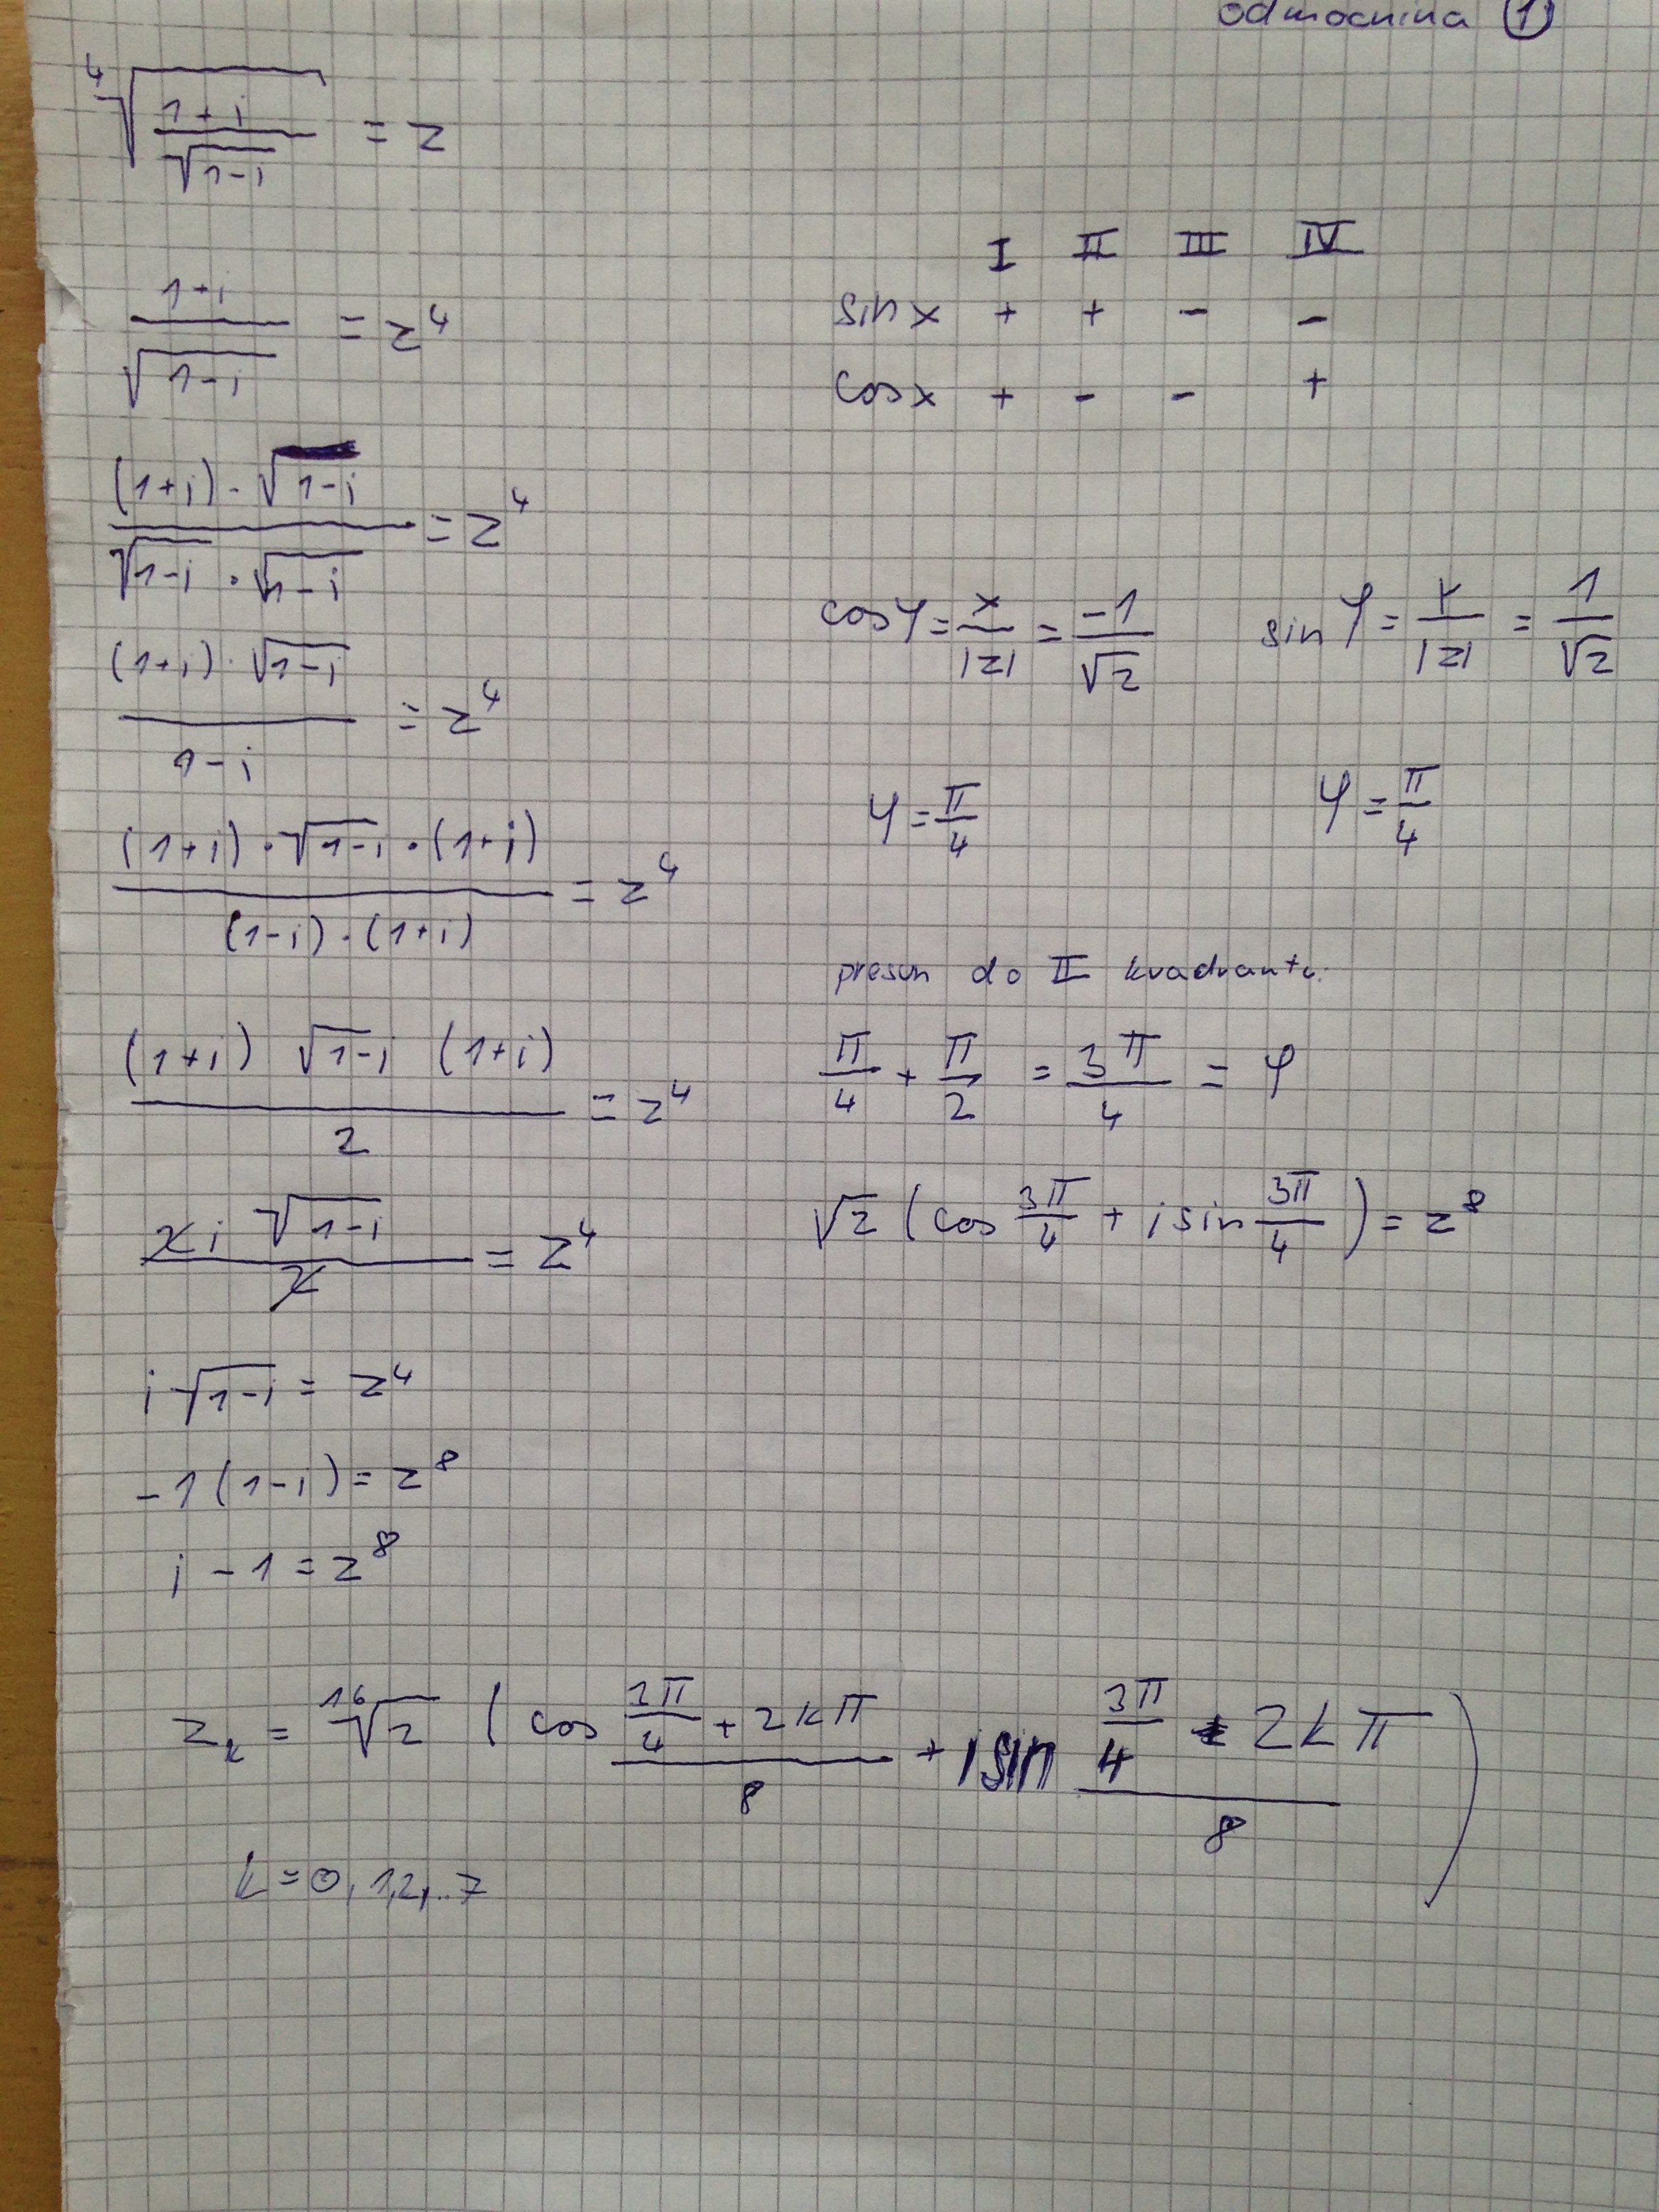 odmocnina ①
⁴√((1+i)/√(1-i)) = z
(1+i)/√(1-i) = z⁴
((1+i)·√(1-i))/(√(1-i)·√(1-i)) = z⁴
((1+i)·√(1-i))/(1-i) = z⁴
((1+i)·√(1-i)·(1+i))/((1-i)·(1+i)) = z⁴
((1+i) √(1-i) (1+i))/2 = z⁴
(2i √(1-i))/2 = z⁴
i√(1-i) = z⁴
-1(1-i) = z⁸
i-1 = z⁸
I II III IV
sin x + + - -
cos x + - - +
cos φ = x/|z| = -1/√2 sin φ = y/|z| = 1/√2
φ = π/4 φ = π/4
presun do II kvadrantu:
π/4 + π/2 = 3π/4 = φ
√2 (cos 3π/4 + i sin 3π/4) = z⁸
zₖ = ¹⁶√2 (cos (3π/4 + 2kπ)/8 + i sin (3π/4 + 2kπ)/8)
k = 0, 1, 2, ..7